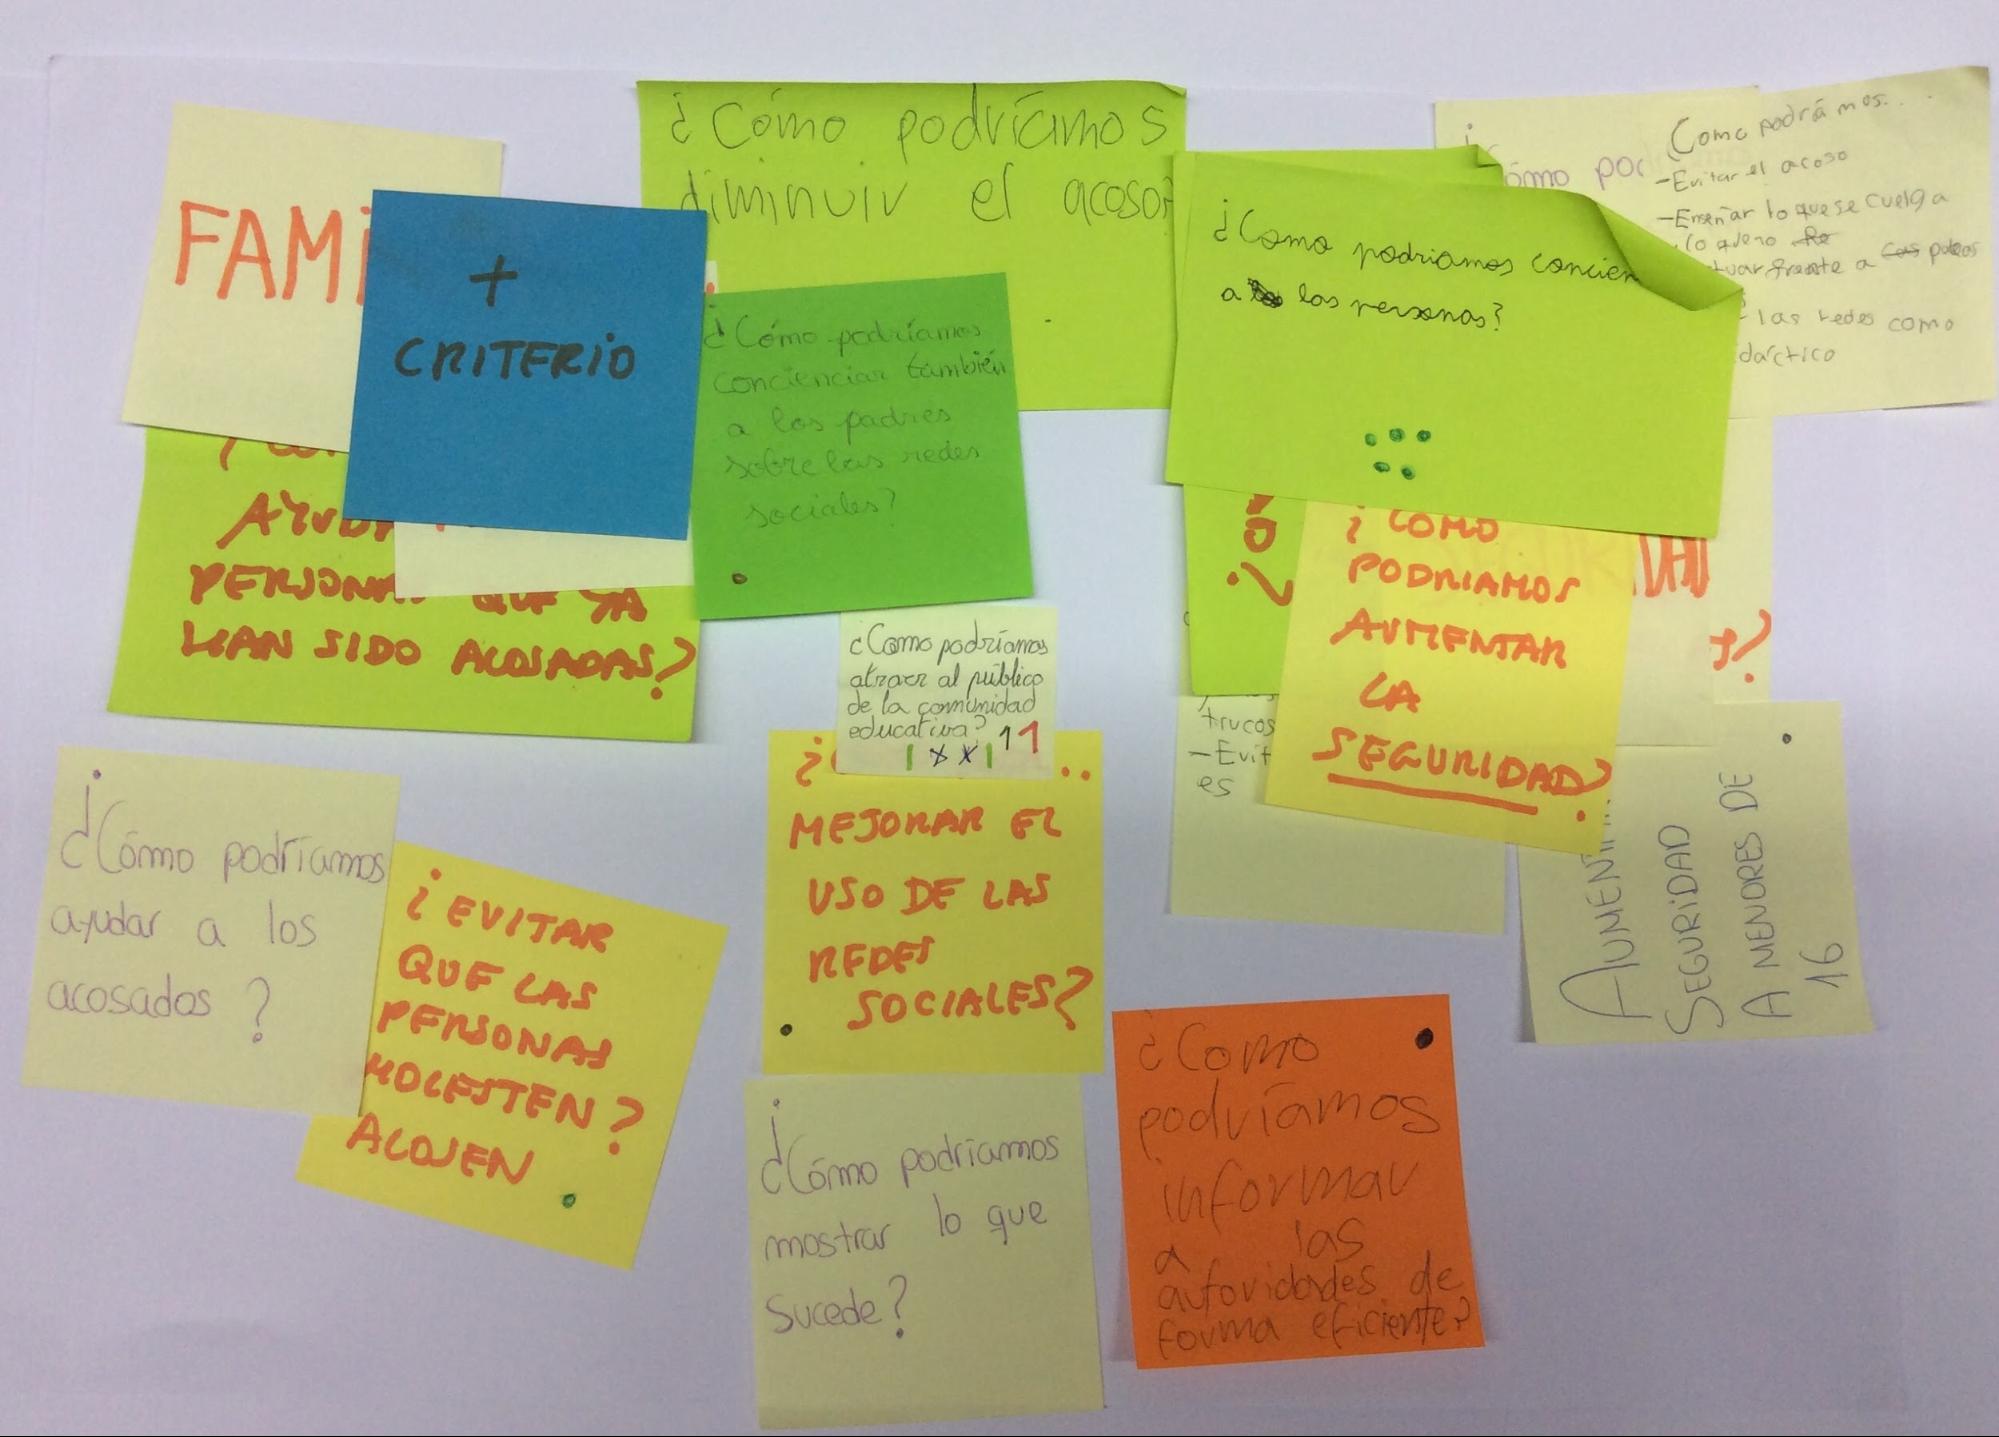 FAMI
+
CRITERIO
AYUD
PERSONA QUE YA
HAN SIDO ACOSADAS?
¿Cómo podríamos
diminuir el acoso?
¿Cómo podríamos
concienciar también
a los padres
sobre las redes
sociales?
¿Como podriamos concien
a los personas?
¿
ómo por
Como podrámos...
-Evitar el acoso
-Enseñar lo que se cuelga
a
tuar frente a
las redes como
dáctico
¿CO
¿COMO
PODRIAMOS
AUMENTAR
LA
SEGURIDAD?
S?
trucos
-Evit
es
AUMEN
SEGURIDAD
A MENORES DE
16
¿Como podríamos
atraer al público
de la comunidad
educativa?
¿ ..
MEJORAR EL
USO DE LAS
REDES
SOCIALES?
¿Cómo podríamos
ayudar a los
acosados?
¿EVITAR
QUE LAS
PERSONAS
MOLESTEN?
ACOSEN
¿Cómo podríamos
mostrar lo que
sucede?
¿Como
podríamos
informar
a las
autoridades de
forma eficiente?